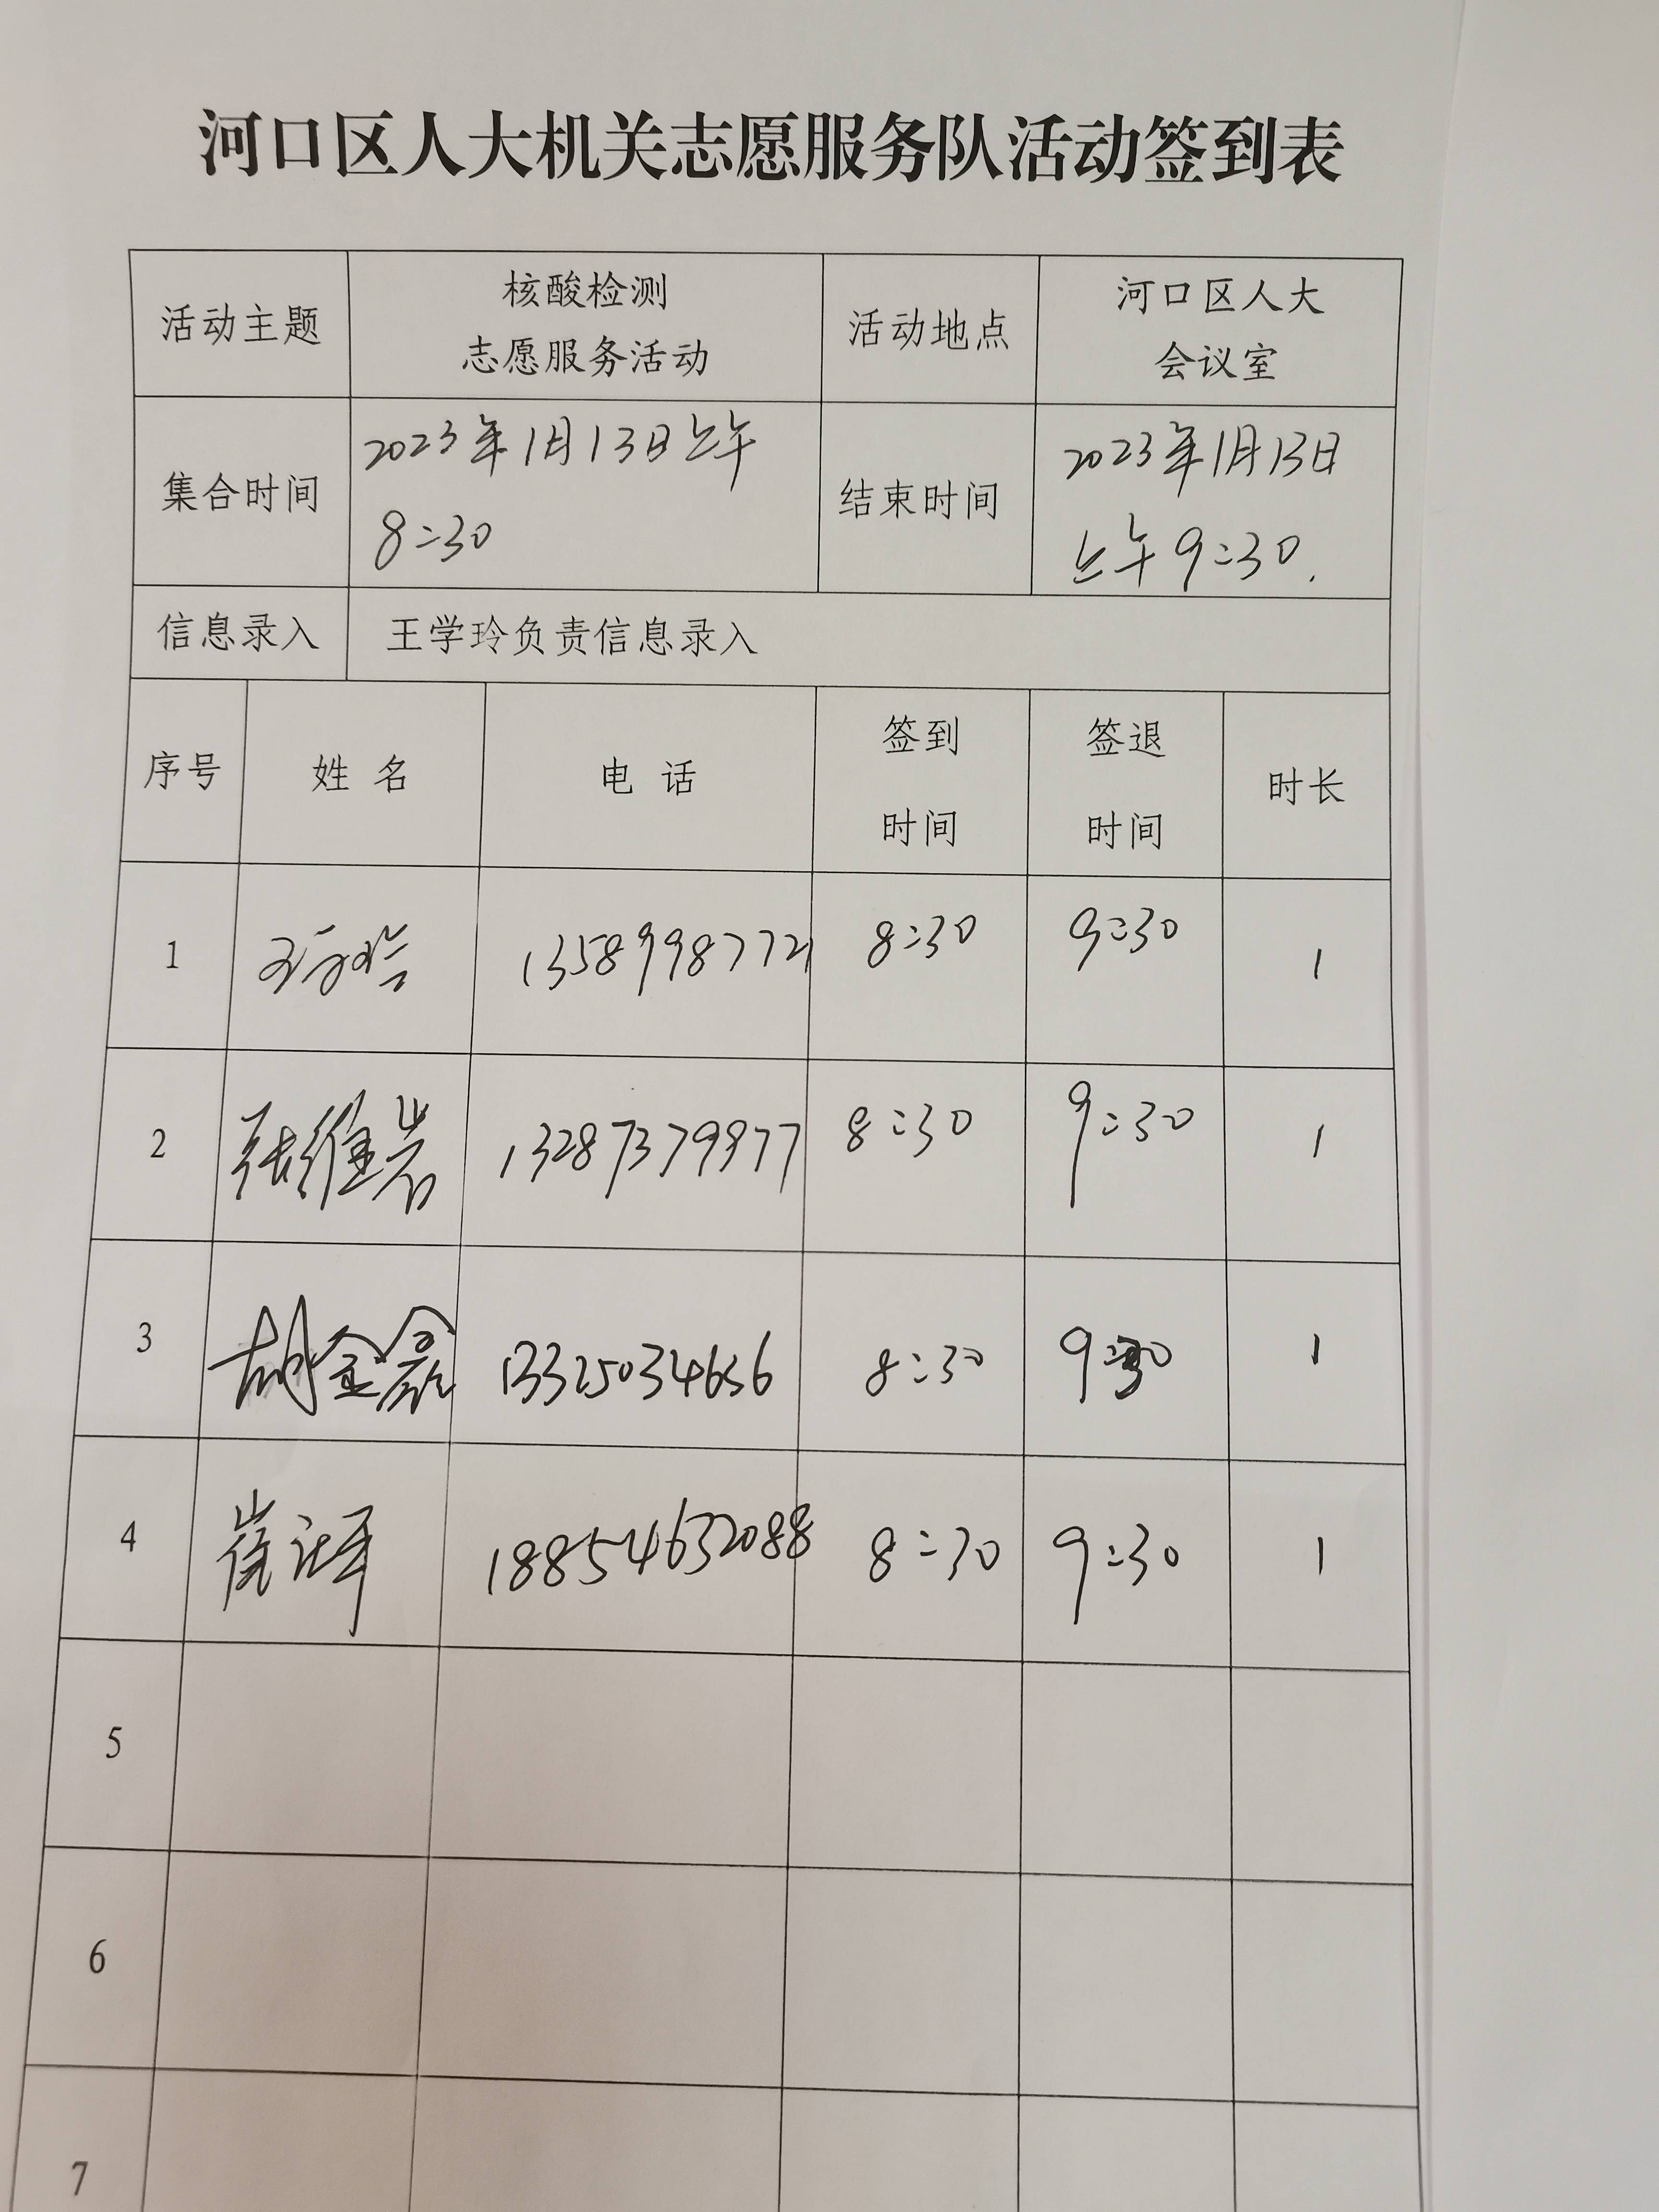 河口区人大机关志愿服务队活动签到表
活动主题
核酸检测
志愿服务活动
活动地点
河口区人大
会议室
集合时间
2023年1月13日上午
8:30
结束时间
2023年1月13日
上午9:30.
信息录入
王学玲负责信息录入
序号
姓 名
电 话
签到
时间
签退
时间
时长
1 王学玲 13589987721 8:30 9:30 1
2 张维岩 13287379977 8:30 9:30 1
3 胡金 8:30 9:30 1
4 崔 18854632088 8:30 9:30 1
5
6
7